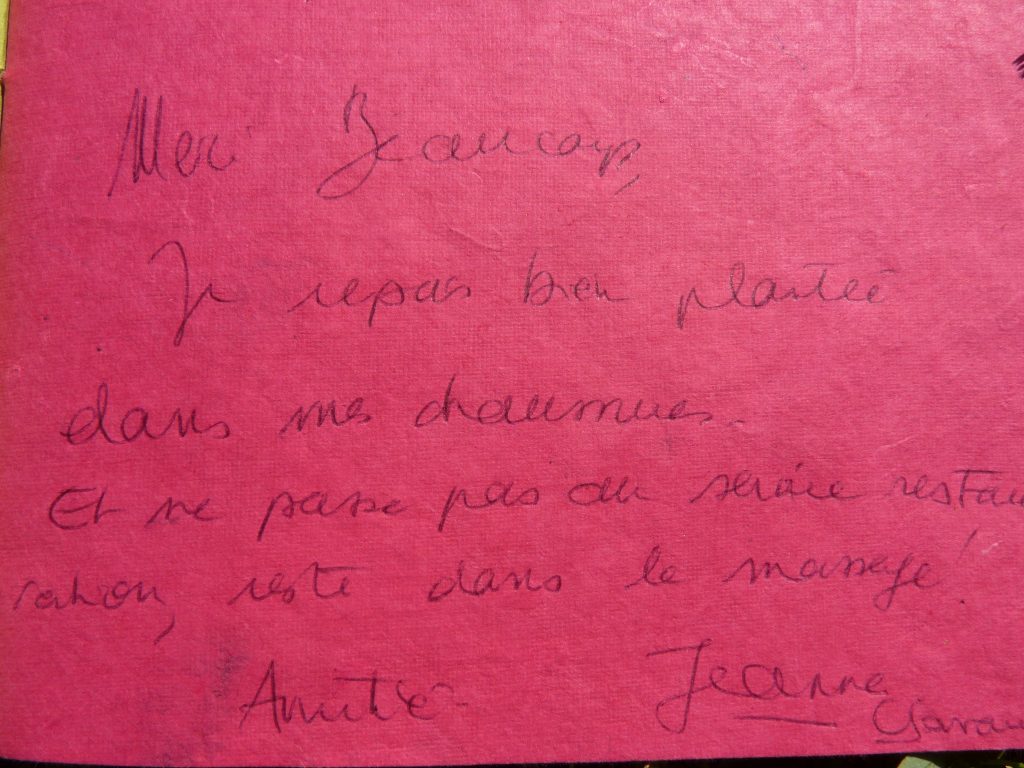 Merci Beaucoup,
Je repars bien plantée
dans mes chaussures.
Et ne passe pas au service restau
ration, reste dans le massage!
Amitié
Jeanne